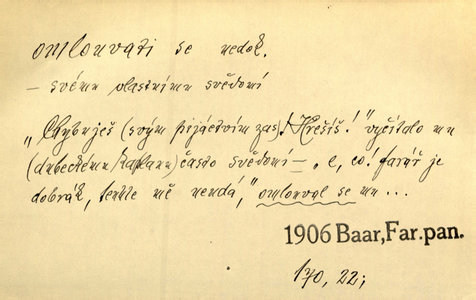 omlouvati se nedok.
— svému vlastnímu svědomí
„Chybuješ (svým pijáctvím zas)! Hřešíš!" vyčítalo mu
(dubeckému kaplanu) často svědomí — „e, co! farář je
dobrák, tenhle mě nendá," omlouval se mu ...
1906 Baar, Far. pan.
170, 22;